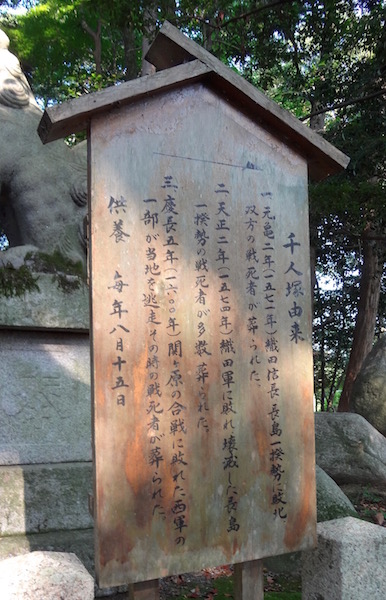 千人塚由来
一 元亀二年(一五七一年)織田信長長島一揆勢に敗北
双方の戦死者が葬られた。
二 天正二年(一五七四年)織田軍に敗れ壊滅した長島
一揆勢の戦死者が多数葬られた。
三 慶長五年(一六〇〇年)関ヶ原の合戦に敗れた西軍の
一部が当地を逃走その時の戦死者が葬られた。
供養 毎年八月十五日